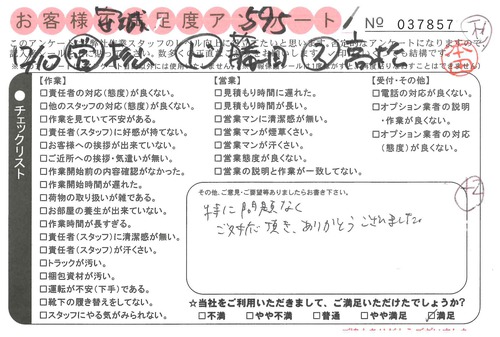 お客様 満足度アンケート
№ 037857
【作業】
□責任者の対応(態度)が良くない。
□他のスタッフの対応(態度)が良くない。
□作業を見ていて不安がある。
□責任者(スタッフ)に好感が持てない。
□お客様への挨拶が出来ていない。
□ご近所への挨拶・気遣いが無い。
□作業開始前の内容確認がなかった。
□作業開始時間が遅れた。
□荷物の取り扱いが雑である。
□お部屋の養生が出来ていない。
□作業時間が長すぎる。
□責任者(スタッフ)に清潔感が無い。
□責任者(スタッフ)が汗くさい。
□トラックが汚い。
□梱包資材が汚い。
□運転が不安(下手)である。
□靴下の履き替えをしてない。
□スタッフにやる気がみられない。
【営業】
□見積もり時間に遅れた。
□見積もり時間が長い。
□営業マンに清潔感が無い。
□営業マンが煙草くさい。
□営業マンが汗くさい。
□営業態度が良くない。
□営業の説明と作業が一致してない。
【受付・その他】
□電話の対応が良くない。
□オプション業者の説明
・作業が良くない。
□オプション業者の対応
(態度)が良くない。
●チェックリスト
その他、ご意見・ご要望等ありましたらお書き下さい。
特に問題なく
ご対応頂き、ありがとうございました。
☆当社をご利用いただきまして、ご満足いただけたでしょうか?
□不満 □やや不満 □普通 □やや満足 □満足